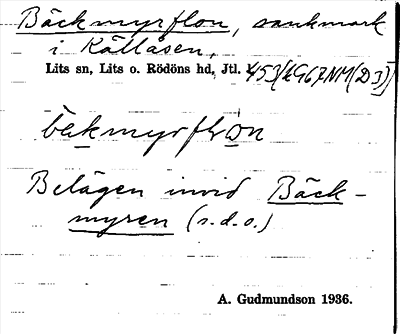 Bäckmyrflon, sankmark
i Kållåsen,
Lits sn, Lits o. Rödöns hd, Jtl.
bäkmyrflon
Belägen invid Bäck-
myren (s.d.o.)
A. Gudmundson 1936.